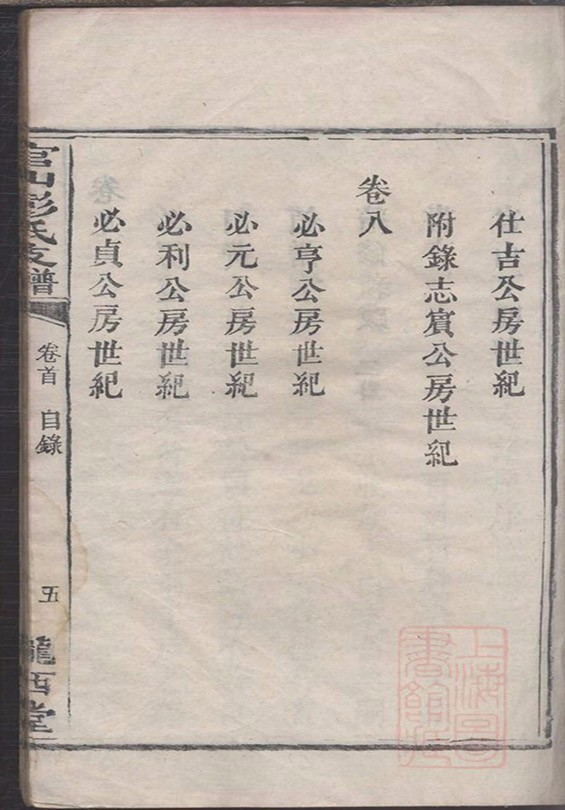 仕吉公房世紀
附錄志賓公房世紀
卷八
必亨公房世紀
必元公房世紀
必利公房世紀
必貞公房世紀
官山彭氏支譜
卷首 目錄
五
隴西堂
上海圖
書館藏